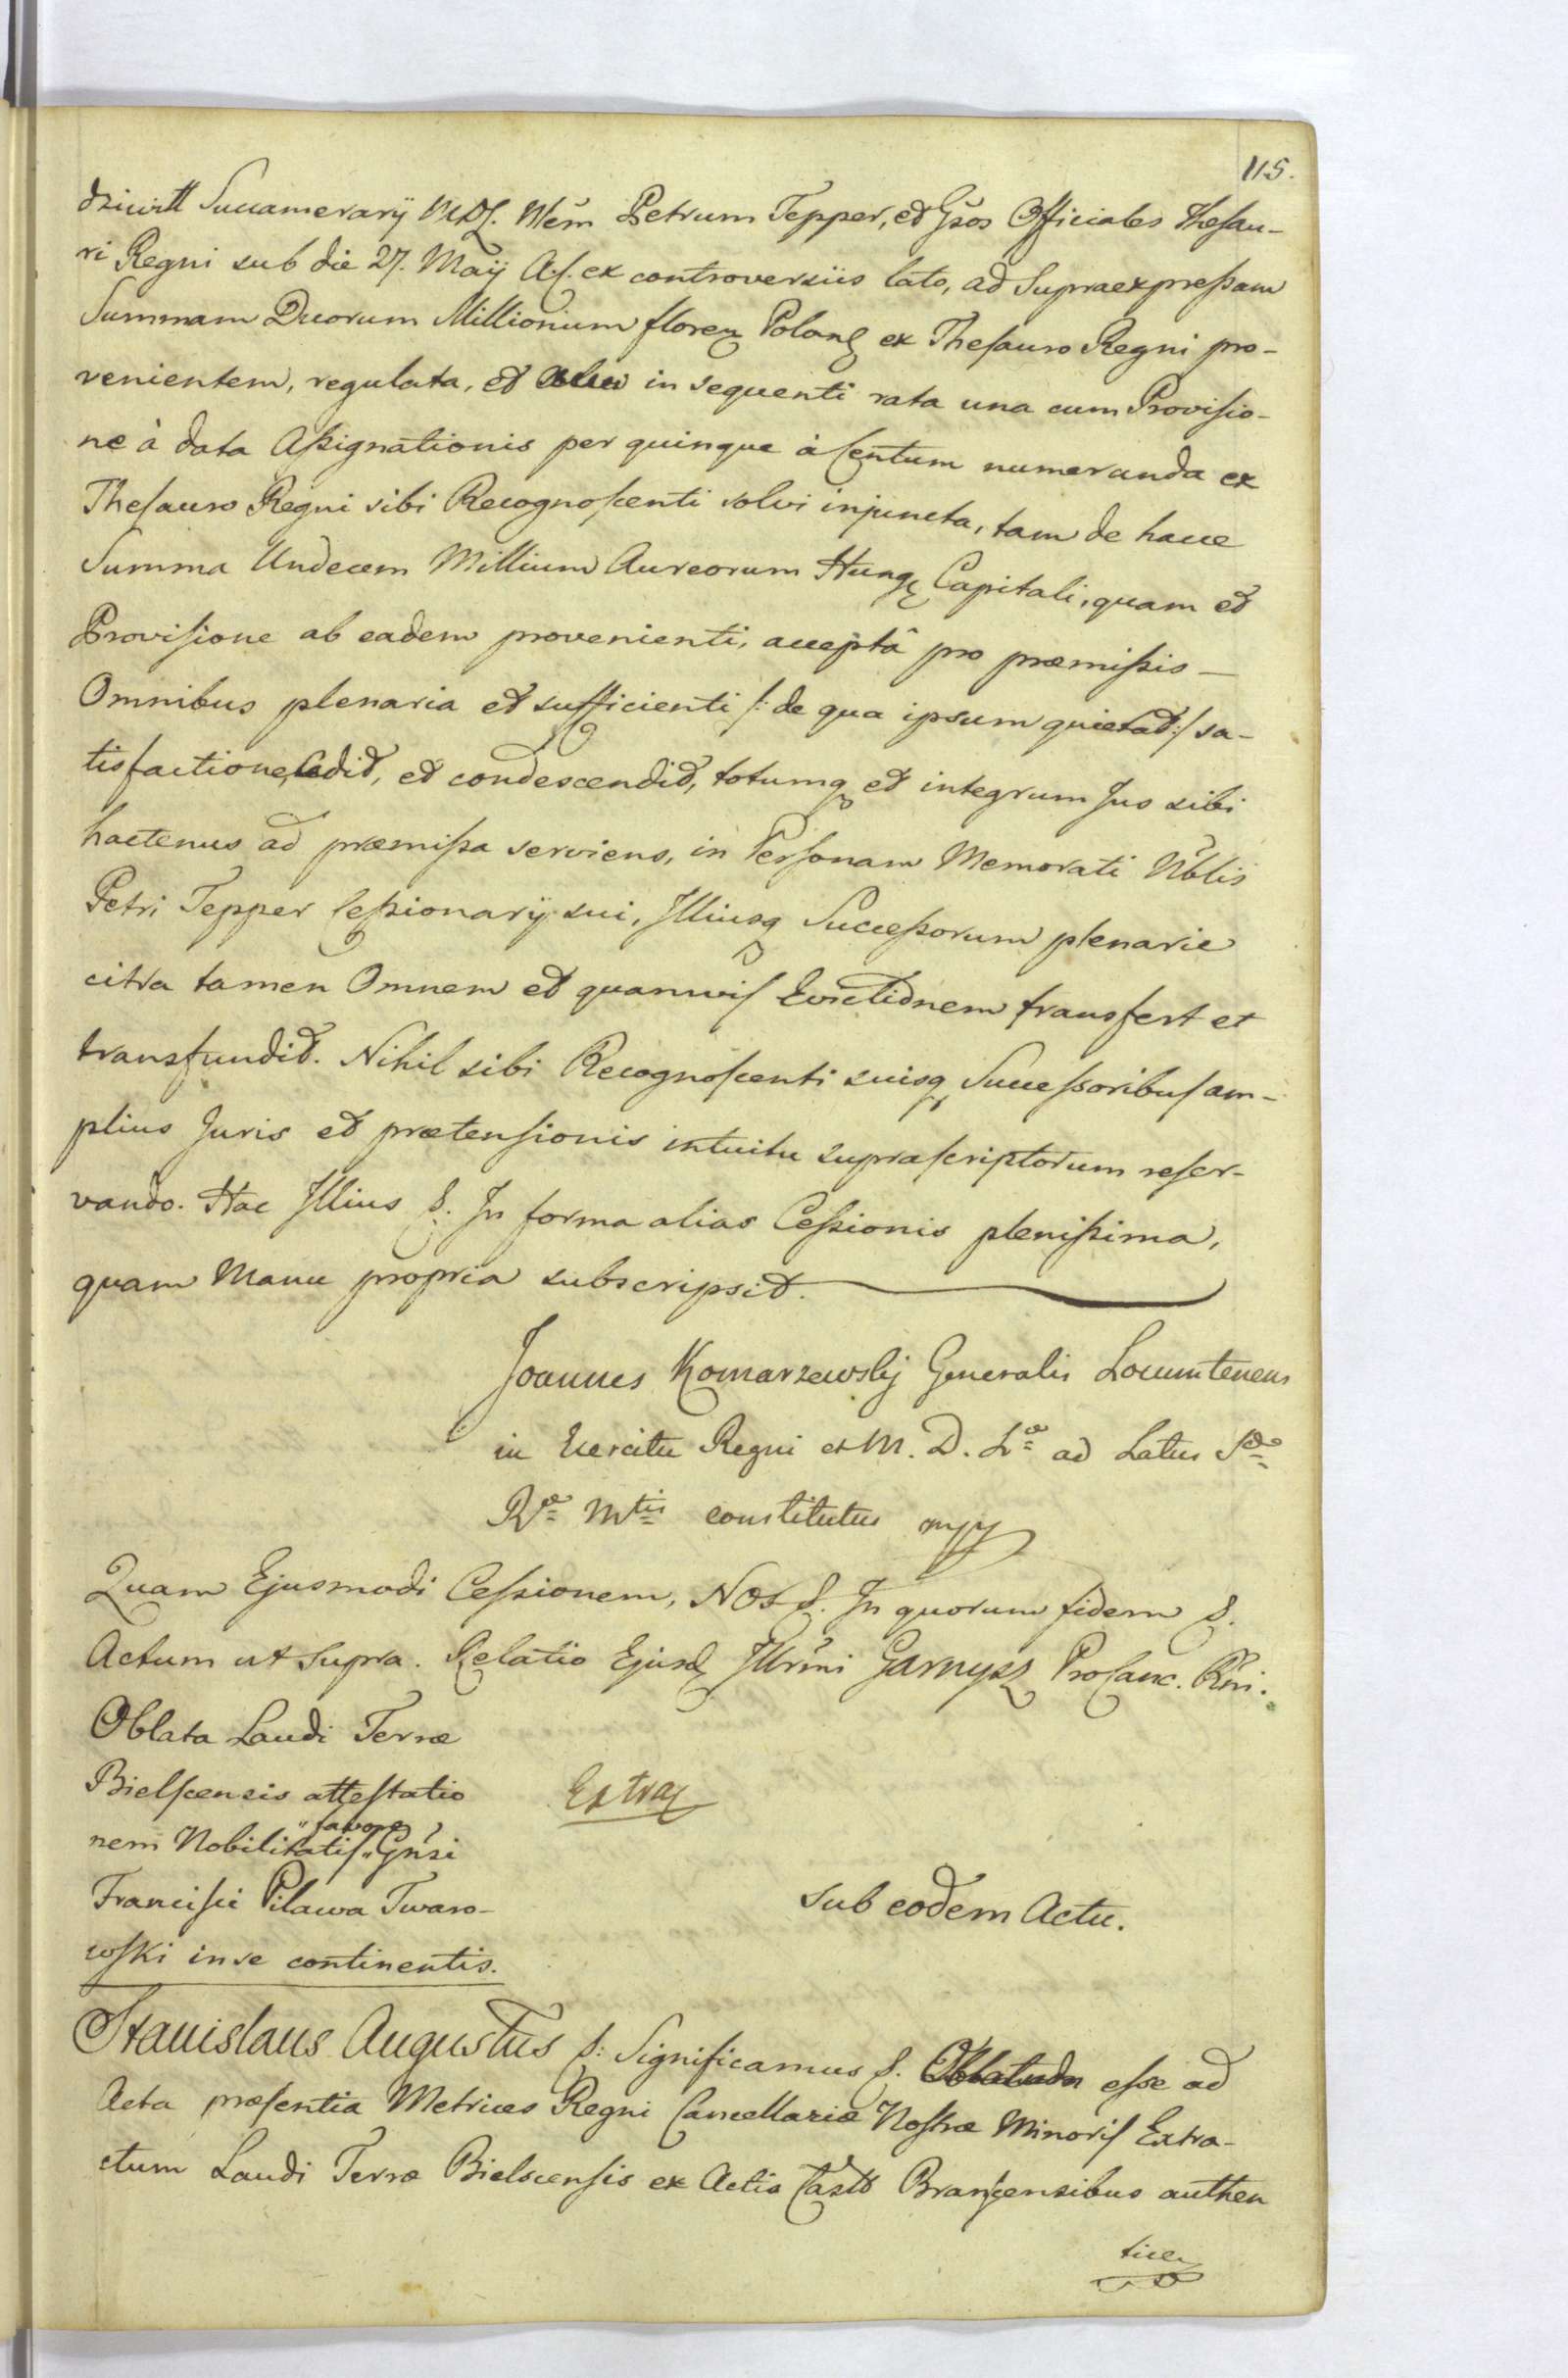 115.
dziwill Succamerarÿ MDL. Nem Petrum Tepper, et Gsos Officiales Thesau-
ri Regni sub die 27. Maÿ A. c. ex controversiis lato, ad Supraexpressam
Summam Duorum Millionum floren Polonl ex Thesauro Regni pro-
venientem, regulata, et in sequenti rata una cum Provisio-
ne à data Assignationis per quinque à Centum numeranda ex
Thesauro Regni sibi Recognoscenti solvi injuncta, tam de hacce
Summa Undecem Millium Aureorum Hung Capitali, quam et
Provisione ab eadem provenienti, acceptâ pro præmissis —
Omnibus plenaria et sufficienti /: de qua ipsum quietat :/ sa-
tisfactione, Cedit, et condescendit, totumq et integrum Jus sibi
hactenus ad præmissa serviens, in Personam Memorati Nblis
Petri Tepper Cessionarÿ sui, Illiusq Successorum plenarie
citra tamen Omnem et quamvis Evictionem transfert et
transfundit. Nihil sibi Recognoscenti suisq Successoribus am-
plius Juris et prætensionis intuitu suprascriptorum reser-
vando. Hac Illius &. In forma alias Cessionis plenissima,
quam Manu propria subscripsit.
Joannes Komarzewskij Generalis Locumtenens
in Exercitu Regni et M. D. Læ ad Latus Sæ
Ræ Mtis constitutus mpp
Quam Ejusmodi Cessionem, Nos &. In quorum fidem &.
Actum ut supra. Relatio Ejusd Illrmi Garnysz ProCanc. Rni.
Oblata Laudi Terræ
Bielscensis attestatio
nem Nobilitatis "favore" Gnsi
Francisci Pilawa Twaro-
wski in se continentis.
Extrax
Sub eodem Actu.
Stanislaus Augustus &: Significamus &. Oblatum esse ad
Acta præsentia Metrices Regni Cancellariæ Nostræ Minoris Extra-
ctum Laudi Terræ Bielscensis ex Actis Castr Branscensibus authen
tice